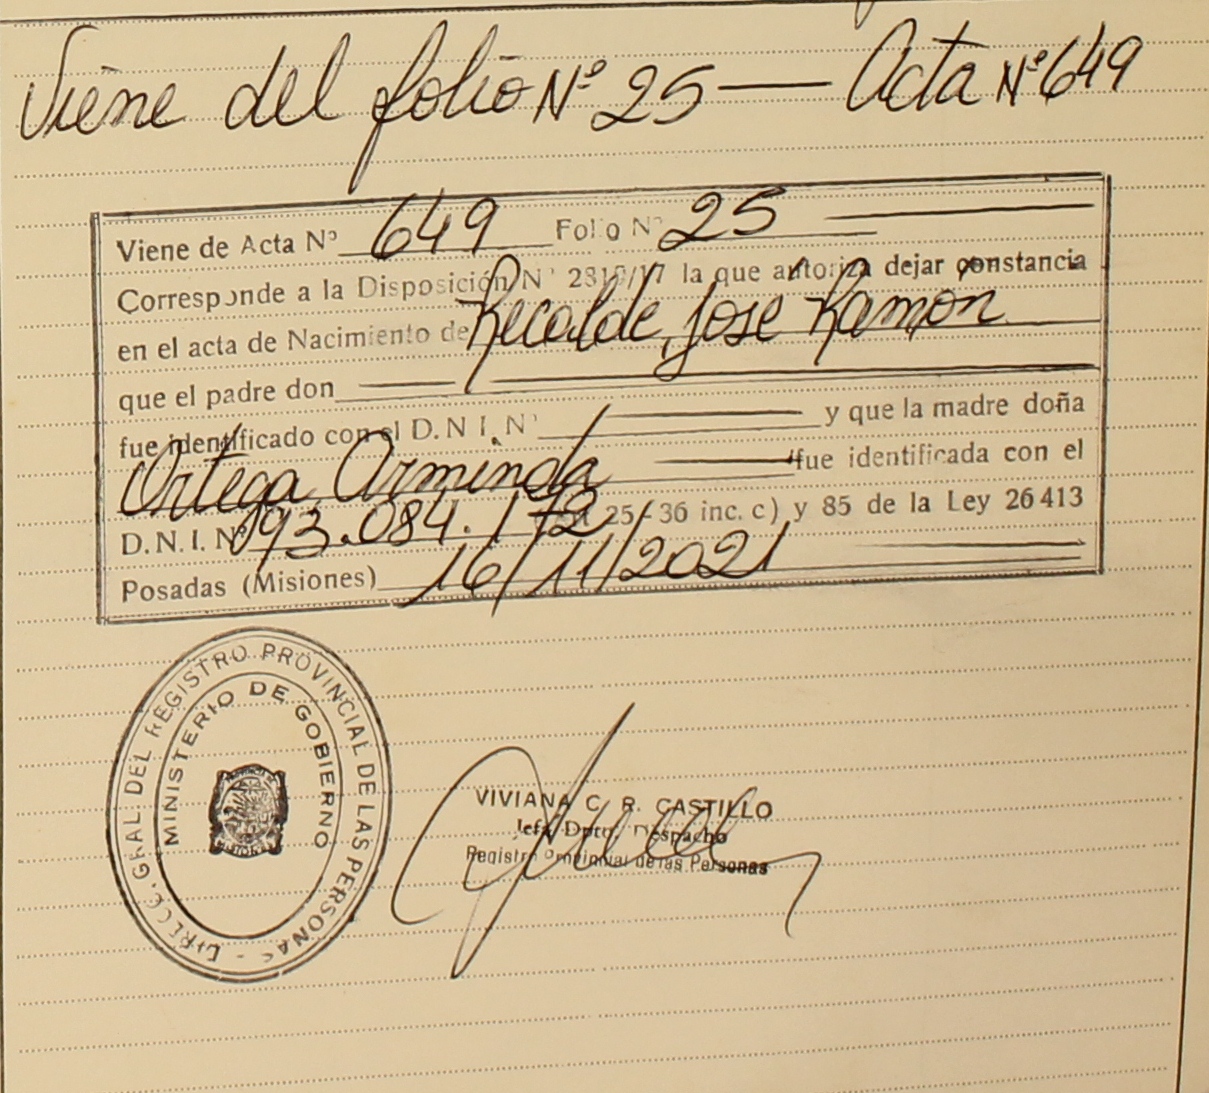 Viene del folio Nº 25 — Acta Nº 649
Viene de Acta Nº 649 Folio Nº 25
Corresponde a la Disposición Nº /17 la que autoriza dejar constancia
en el acta de Nacimiento de Recalde, Jose Ramon
que el padre don
fue identificado con el D.N.I. Nº y que la madre doña
Ortega, Arminda fue identificada con el
D.N.I. Nº 93.084.172 25 - 36 inc. c) y 85 de la Ley 26413
Posadas (Misiones) 16/11/2021
DIRECC. GRAL. DEL REGISTRO PROVINCIAL DE LAS PERSONAS -
MINISTERIO DE GOBIERNO
VIVIANA C. R. CASTILLO
Jefa Dpto. Despacho
Registro Provincial de las Personas